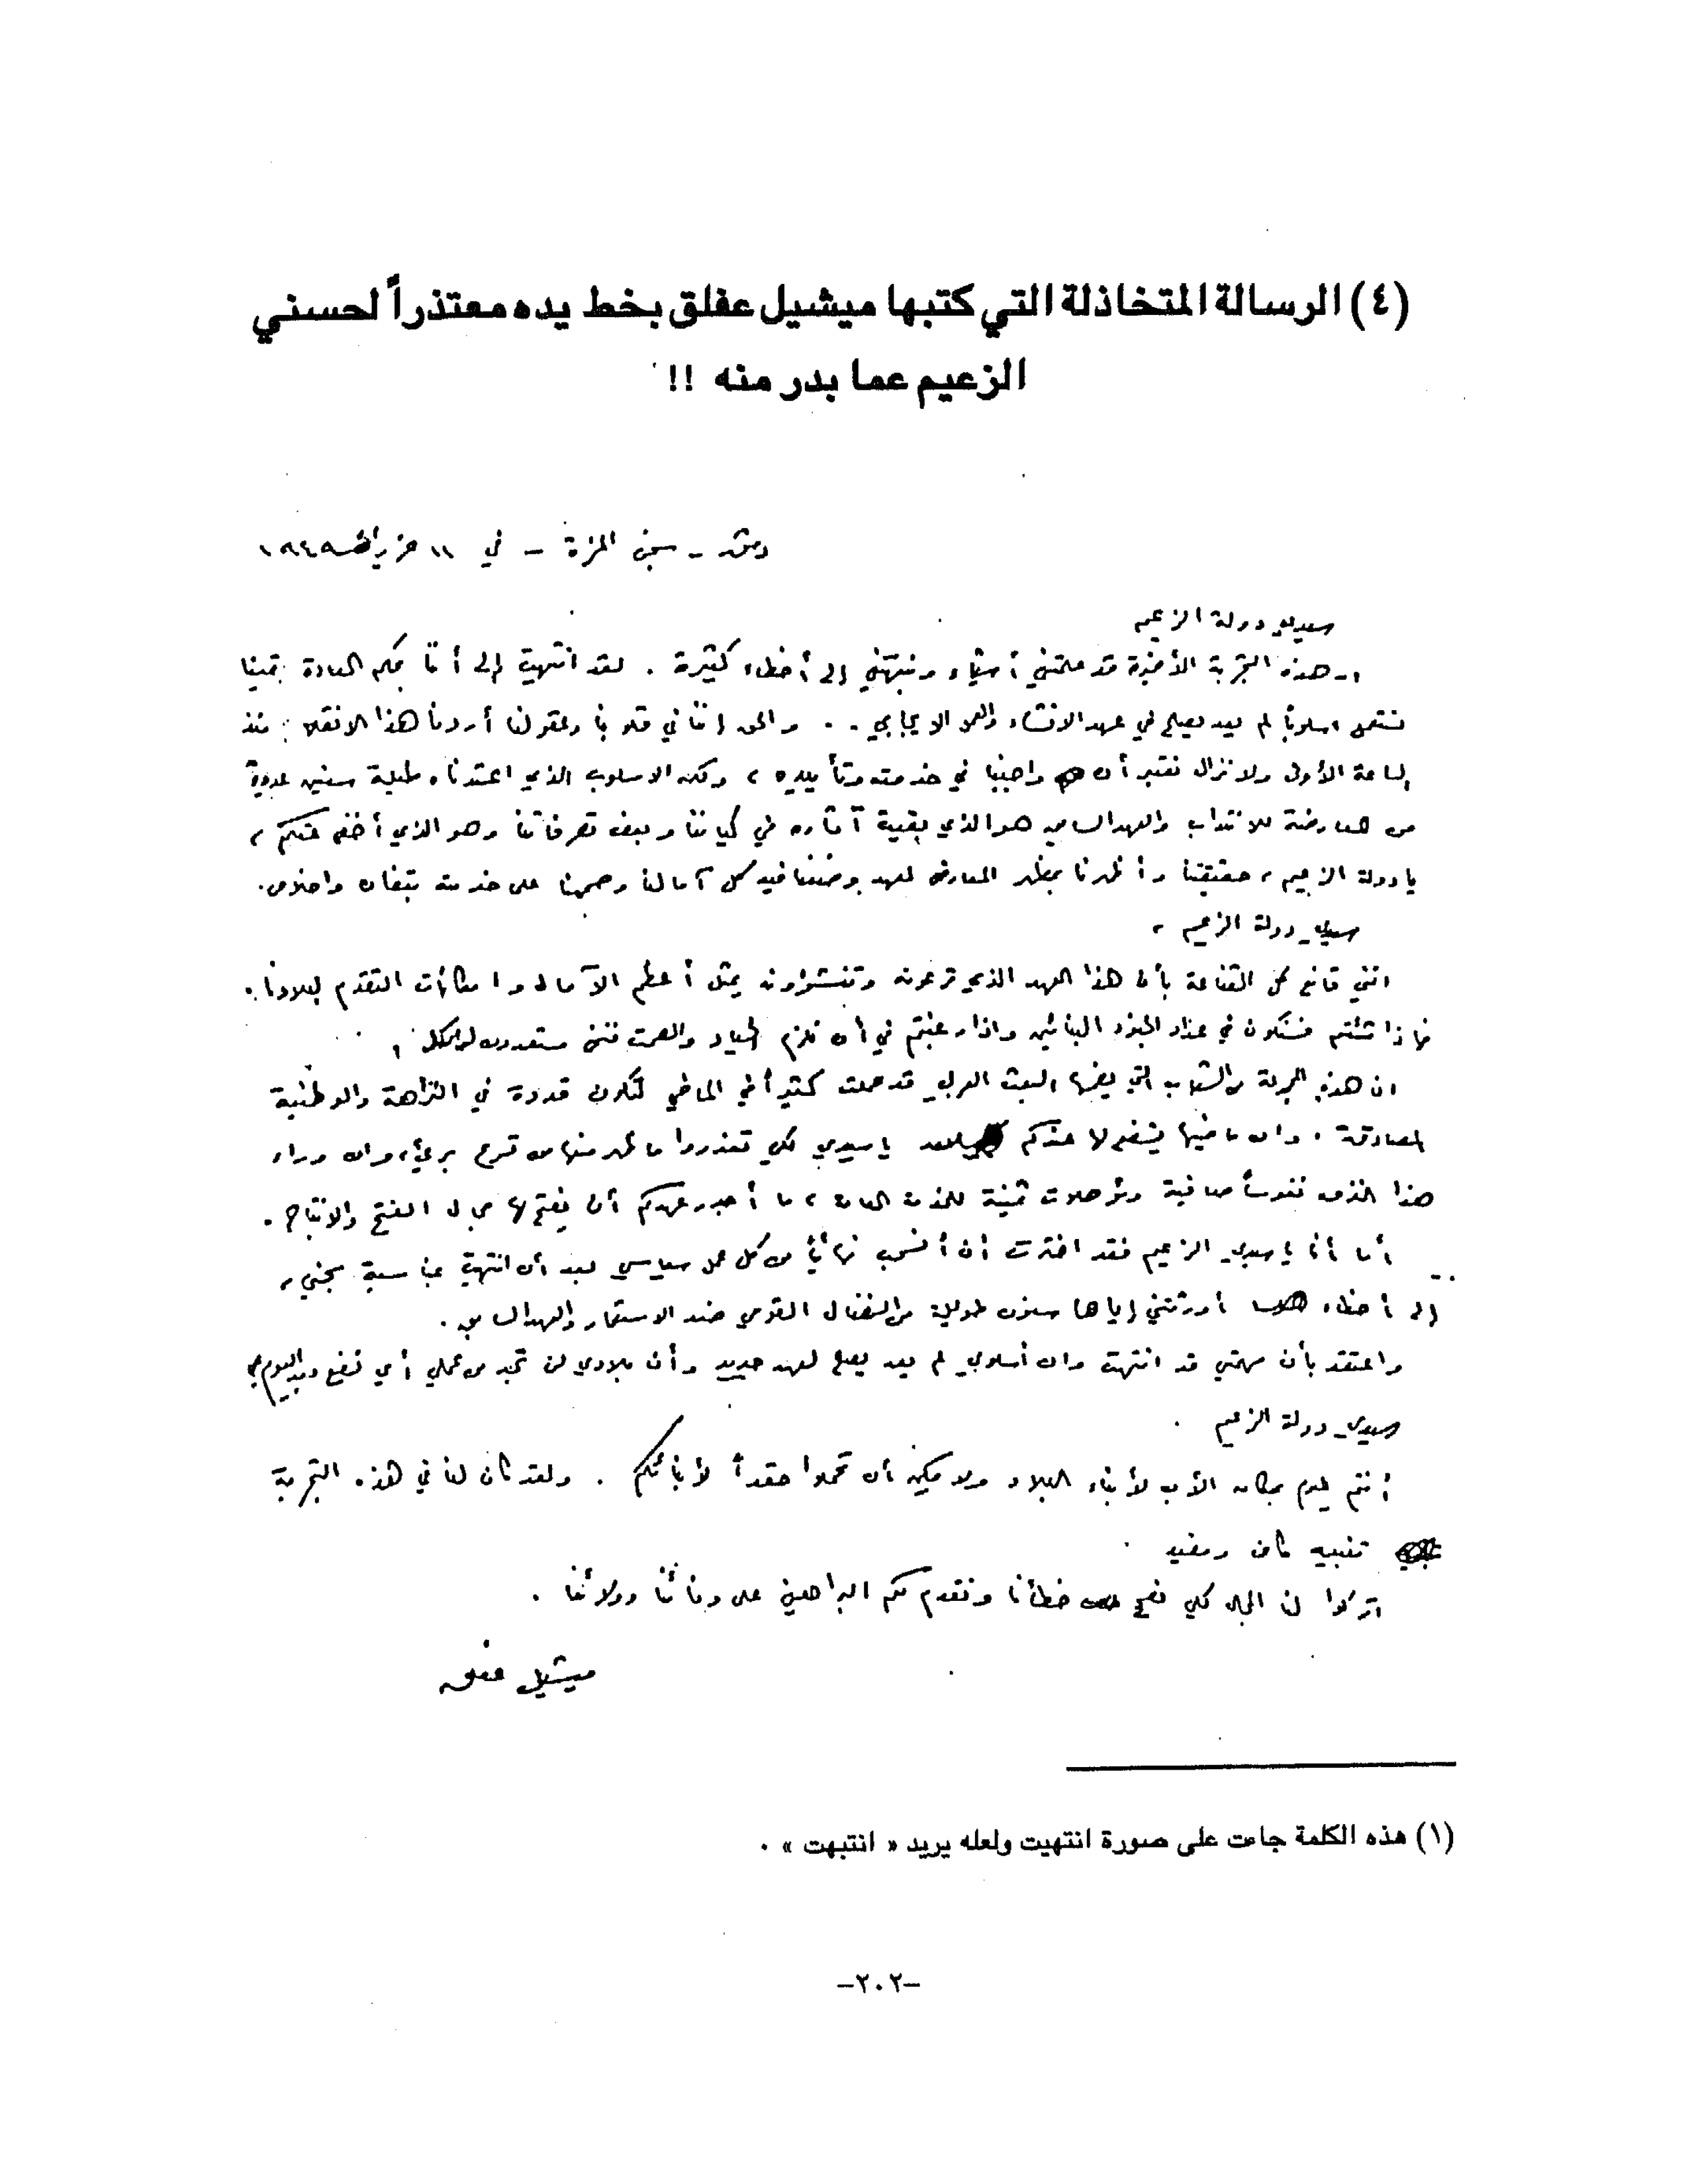 (٤) الرسالة المتخاذلة التي كتبها ميشيل عفلق بخط يده معتذراً لحسني
الزعيم عما بدر منه !!
دمشق - سجن المزة - في ١١ حزيران ١٩٤٩
سيدي دولة الزعيم
ان هذه التجربة الأخيرة قد علمتني أشياء ونبهتني إلى أخطاء كثيرة . لقد انتهيت إلى أننا بحكم العادة بقينا
نستعمل اسلوباً لم يعد يصلح في عهد الانشاء والعمل الايجابي .. والحق إننا في قلوبنا وعقولنا أردنا هذا الانقلاب منذ
الساعة الأولى ولا نزال نعتبر أن واجبنا في خدمته وتأييده ، ولكن الاسلوب الذي اعتدناه طيلة سنين عديدة
من المعارضة للانتداب والعهد السابق هو الذي بقيت آثاره في كياننا وبعض تصرفاتنا وهو الذي أخفى عنكم ،
يا دولة الزعيم ، حقيقتنا وأظهرنا بمظهر المعارض لعهد وضعنا فيه كل آمالنا وصممنا على خدمته بتفان واخلاص .
سيدي دولة الزعيم ،
انني قانع كل القناعة بأن هذا العهد الذي ترعونه وتنشؤونه يمثل أعظم الآمال وامكانيات التقدم لبلادنا .
فاذا شئتم فسنكون في عداد الجنود البنائين واذا رغبتم في أن نلزم الحياد والصمت فنحن مستعدون لذلك .
ان هذه المجموعة من الشباب التي يضمها البعث العربي قد عملت كثيراً في الماضي لتكون قدوة في النزاهة والوطنية
الصادقة . وان ماضيها يشفع لها عندكم يا سيدي لكي تعذروا ما ظهر منها من تسرع بريء ، وان وراء
هذا النزق نفوساً صافية ومؤهلات ثمينة للخدمة العامة ، ما أجدر عهدكم أن يفتح لها مجال التفتح والانتاج .
أما أنا يا سيدي الزعيم فقد اخترت أن أنسحب نهائياً من كل عمل سياسي بعد أن انتهيت بمناسبة سجني ،
إلى أخطاء أورثتني إياها سنون طويلة من النضال القومي ضد الاستعمار والعهد السابق .
واعتقد بأن مهمتي قد انتهت وان أسلوبي لم يعد يصلح لعهد جديد وأن بلادي لن تجد من عملي أي نفع بعد اليوم
سيدي دولة الزعيم .
أنتم اليوم بمكان الأب لأبناء البلاد ولا يمكن أن تحملوا حقداً لأبنائكم . ولقد كان لنا في هذه التجربة
تنبيه كاف ومفيد .
اتركوا لنا المجال لكي نصحح خطأنا ونقدم لكم البراهين على وفائنا وولائنا .
ميشيل عفلق
(١) هذه الكلمة جاءت على صورة انتهيت ولعله يريد « انتبهت » .
-٢٠٢-